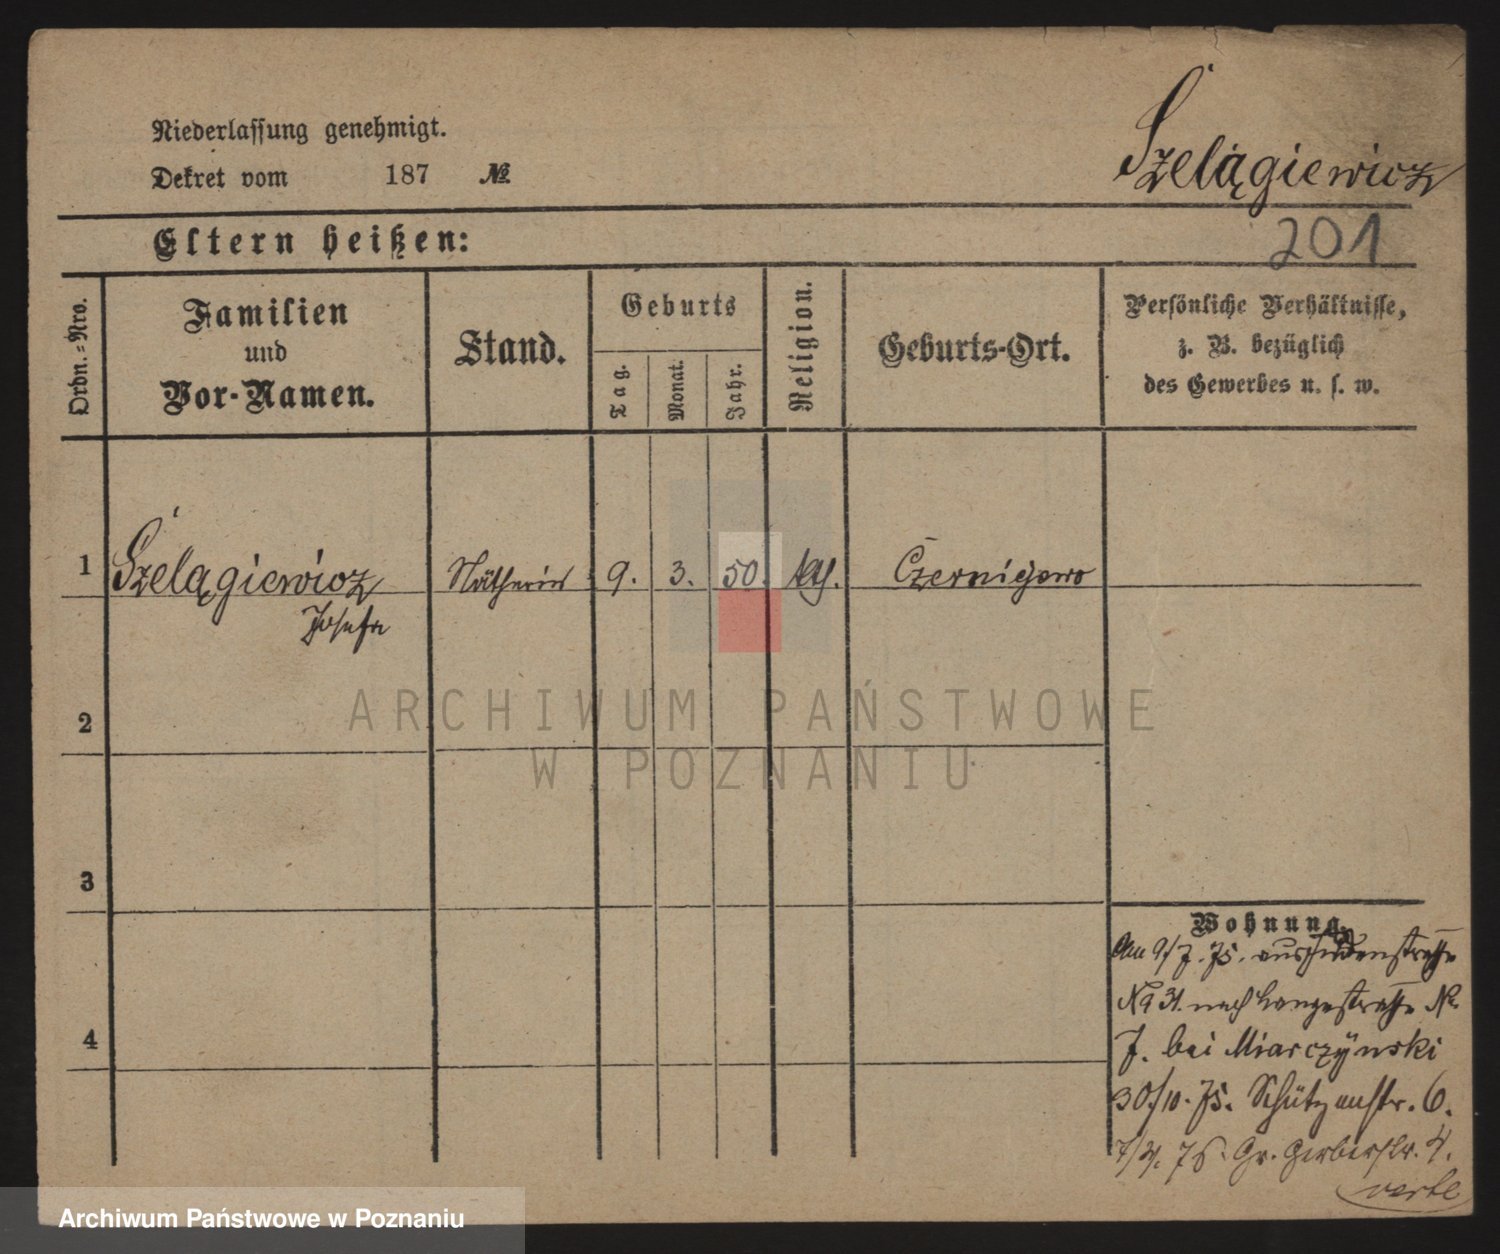 Niederlassung genehmigt.
Szelągiewicz
Dekret vom 187 №
Eltern heißen:
201
Ordn.=Nro.
Familien
und
Vor-Namen.
Stand.
Geburts
Tag.
Monat.
Jahr.
Religion.
Geburts-Ort.
Persönliche Verhältnisse,
z. B. bezüglich
des Gewerbes u. s. w.
1 Szelągiewicz Nätherin 9. 3. 50. kth. Czerniejewo
Josefa
2
3
4
Wohnung.
Am 9/7. 75. aus Judenstraße
No 31. nach Langestraße No
7. bei Miarczynski
30/10. 75. Schützenstr. 6.
Gr. Gerberstr. 4.
verte
ARCHIWUM PAŃSTWOWE
W POZNANIU
Archiwum Państwowe w Poznaniu